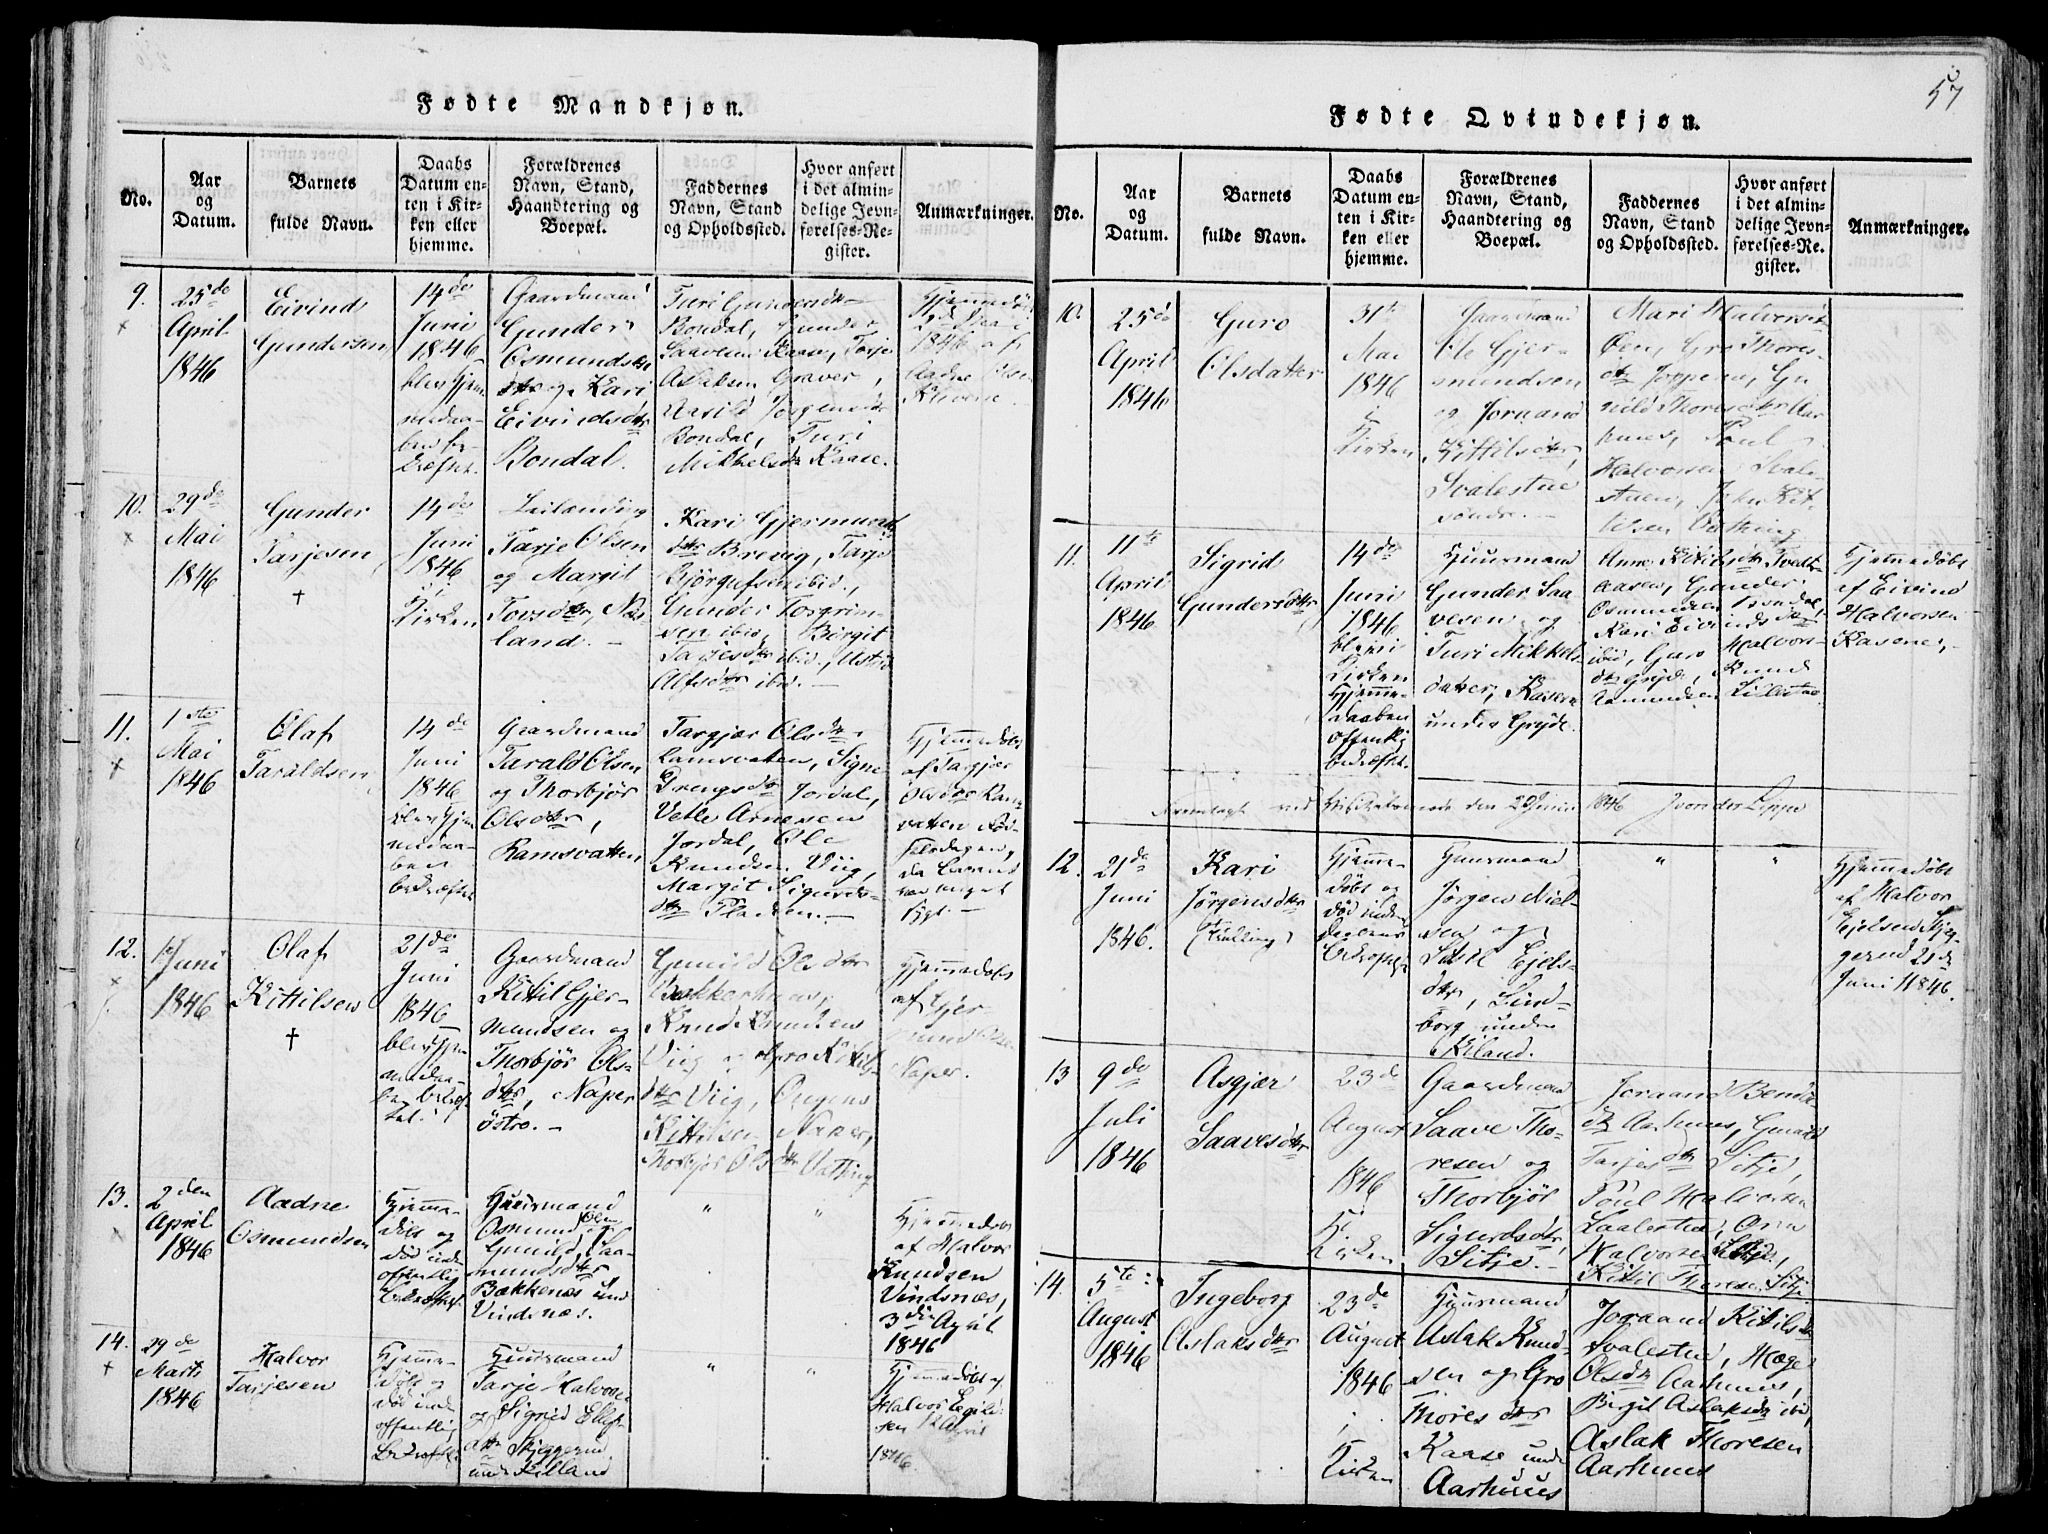 57
Fødte Mandkjøn.
No.
Aar
og
Datum.
Barnets
fulde Navn.
Daabs
Datum en-
ten i Kir-
ken eller
hjemme.
Forældrenes
Navn, Stand,
Haandtering og
Boepæl.
Faddernes
Navn, Stand
og Opholdssted.
Hvor anført
i det almin-
delige Jevn-
førelses-Re-
gister.
Anmærkninger.
9.
25de
April
1846
Eivind
Gundersen
14de
Juni
1846
blev hjem-
medaa-
ben be-
kræftet.
Gaardmand
Gunder
Osmundsen
og Kari
Eivindsdtr
Bondal.
Turi Gundersdtr
Bondal, Gunder
Saavesen Kaase, Tarje
Aslaksen Graver,
Aasild Jørgensdtr
Bondal, Turi
Mikkelsdtr Kaase.
Hjemmedøbt
1846 af
Aadne Olsen
10.
29de
Mai
1846
Gunder
Tarjesen
†
14de
Juni
1846
i
Kirken
Leilænding
Tarje Olsen
og Margit
Tovsdtr, Næs-
land.
Kari Gjermunds-
dtr Brevig, Tarje
Bjørgufsen ibid.,
Gunder Torgrim-
sen ibid, Birgit
Tarjesdtr ibid.,
Alfsdtr ibid.
11.
1ste
Mai
1846
Olaf
Taraldsen
14de
Juni
1846
blev hjem
medaa-
ben
bekræftet
Gaardmand
Tarald Olsen
og Thorbjør
Olsdtr,
Ramsvatten
Targjær Olsdtr
Ramsvatten, Signe
Jordal,
Vetle Arnesen
Jordal, Ole
Knudsen Viig,
Margit Sigurds-
dtr
Hjemmedøbt
af Targjær
Olsdtr Ram-
vatten Fød-
selsdagen,
da Barnet
var meget
sygt.
12.
1 Juni
1846
Olaf
Kittilsen
†
21de
Juni
1846
blev hjem
medaa-
ben bekræf-
tet.
Gaardmand
Kittil Gjer-
mundsen og
Thorbjør Ols-
dtr, Naper
östre.
Gunild Olsdtr
Bakkerhuus,
Knud Knudsen
Viig, Gro Kittils-
dtr Viig,
Kittilsen Naper,
Thorbjør Olsdtr
Hjemmedøbt
af Gjer-
mund Olsen
Naper.
13.
2den
April
1846
Aadne
Osmundsen
Hjemme-
døbt og
død inden
offentlig
bekræftelse
Huusmand
Osmund Olsen
og
Gunild Saa-
mundsdtr
Bakkenes und
Vindsnæs.
"
"
Hjemmedøbt
af Halvor
Knudsen
Vindsnæs,
3die April
1846
14.
29de
Marts
1846
Halvor
Tarjesen
Hjemme-
døbt og
død inden
offentlig
bekræftelse
Huusmand
Tarje Halvorsen
og Sigrid Ellef-
dtr Skjeggerud
under Killand
"
"
Hjemmedøbt af
Halvor
sen 12 April
1846.
Fødte Qvindekjøn.
No.
Aar
og
Datum.
Barnets
fulde Navn.
Daabs
Datum en-
ten i Kir-
ken eller
hjemme.
Forældrenes
Navn, Stand,
Haandtering og
Boepæl.
Faddernes
Navn, Stand
og Opholdssted.
Hvor anført
i det almin-
delige Jevn-
førelses-Re-
gister.
Anmærkninger.
10.
25de
April
1846
Guro
Olsdatter
31te
Mai
1846
i
Kirken
Gaardmand
Ole Gjer-
mundsen
og Joraand
Kittilsdtr,
Svalestue
søndre.
Mari Halvorsdtr
Øen, Gro Thores-
dtr Joppern, Gu
nild Thoresdtr Aar
huus, Poul
Halvorsen Svale-
stuen, John Kit-
tilsen
11.
11te
April
1846
Sigrid
Gundersdtr
14de
Juni
1846
blev i
Kirken
Hjemme-
daaben
offentlig
bekræftet.
Huusmand
Gunder Saa-
vesen og
Turi Mikkels-
datter, Kaasene
under Gryde.
Anne Kittilsdtr Tvedt-
aasen, Gunder
Osmundsen Bondal,
Kari Eivindsdtr
ibid, Guro Halvors-
dtr Gryde, Knud
Hjemmedøbt
af Eivind
Halvorsen
Kasene.
Fremlagt ved Visitationen den 29 Juni 1846
12.
21de
Juni
1846.
Kari
Jørgensdtr
(Tvilling)
Hjemme-
døbt og
død inden
Daabens
bekræftelse
Huusmand
Jørgen Niel-
sen og
Ejels-
dtr, Lind-
borg under
Kiland.
"
"
Hjemmedøbt
af Halvor
Ejelsen Skjeg-
gerud 21de
Juni 1846.
13
9de
Juli
1846
Asgjær
Saavesdtr
23de
August
1846
i
Kirken
Gaardmand
Saave Tho-
resen og
Thorbjør
Sigurdsdtr,
Sitje.
Joraand Bendix
dtr Aarhuus, Gunild
Tarjesdtr Sitje,
Poul Halvorsen
Svalestue,
Halvorsen
Kittil Thoresen Sitje
14.
5te
August
1846
Ingeborg
Aslaksdtr
23de
August
1846
i
Kirken
Huusmand
Aslak Knud-
sen og Gro
Thoresdtr
Kaase under
Aarhuus
Joraand Kittilsdtr
Svalestue, Hæge
Olsdtr Aarhuus,
Birgit Aslaksdtr ibid,
Aslak Thoresen
Aarhuus